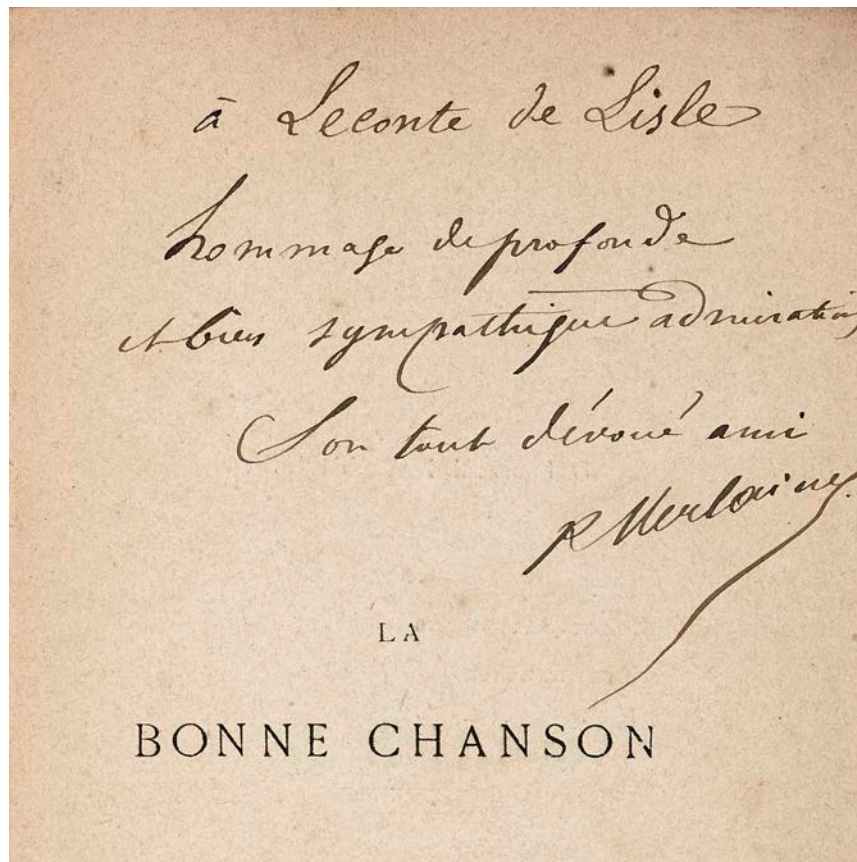 à Leconte de Lisle
hommage de profonde
et bien sympathique admiration
Son tout dévoué ami
P Verlaine
LA
BONNE CHANSON